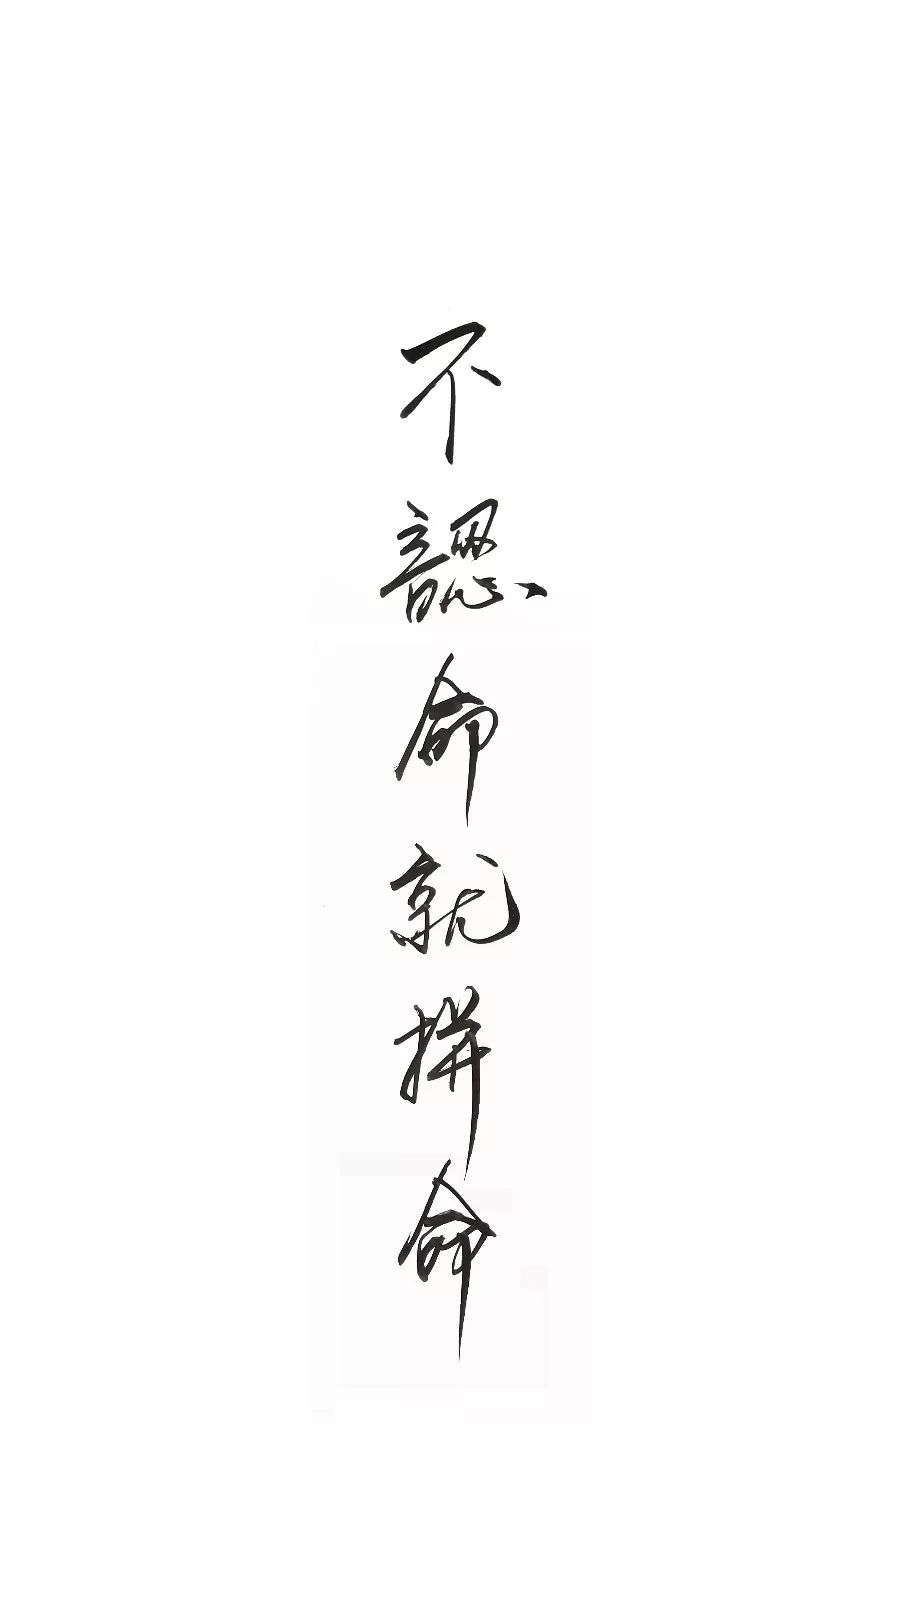 不認命就拼命